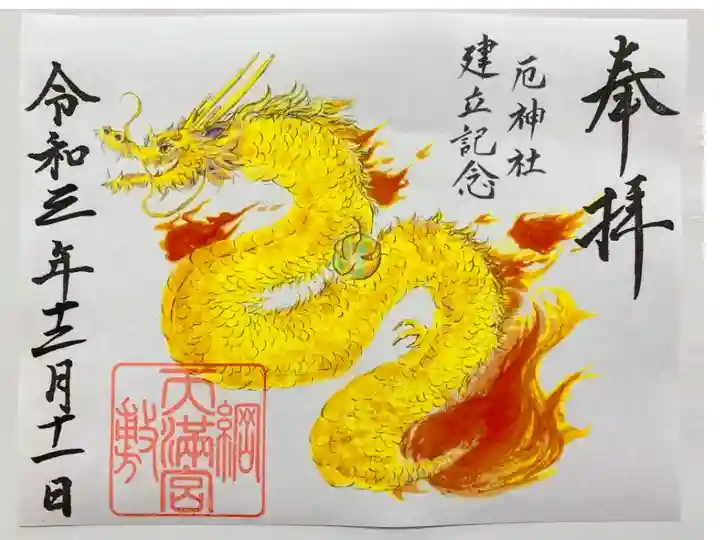 奉拝
厄神社
建立記念
令和三年十二月十一日
綱敷天満宮